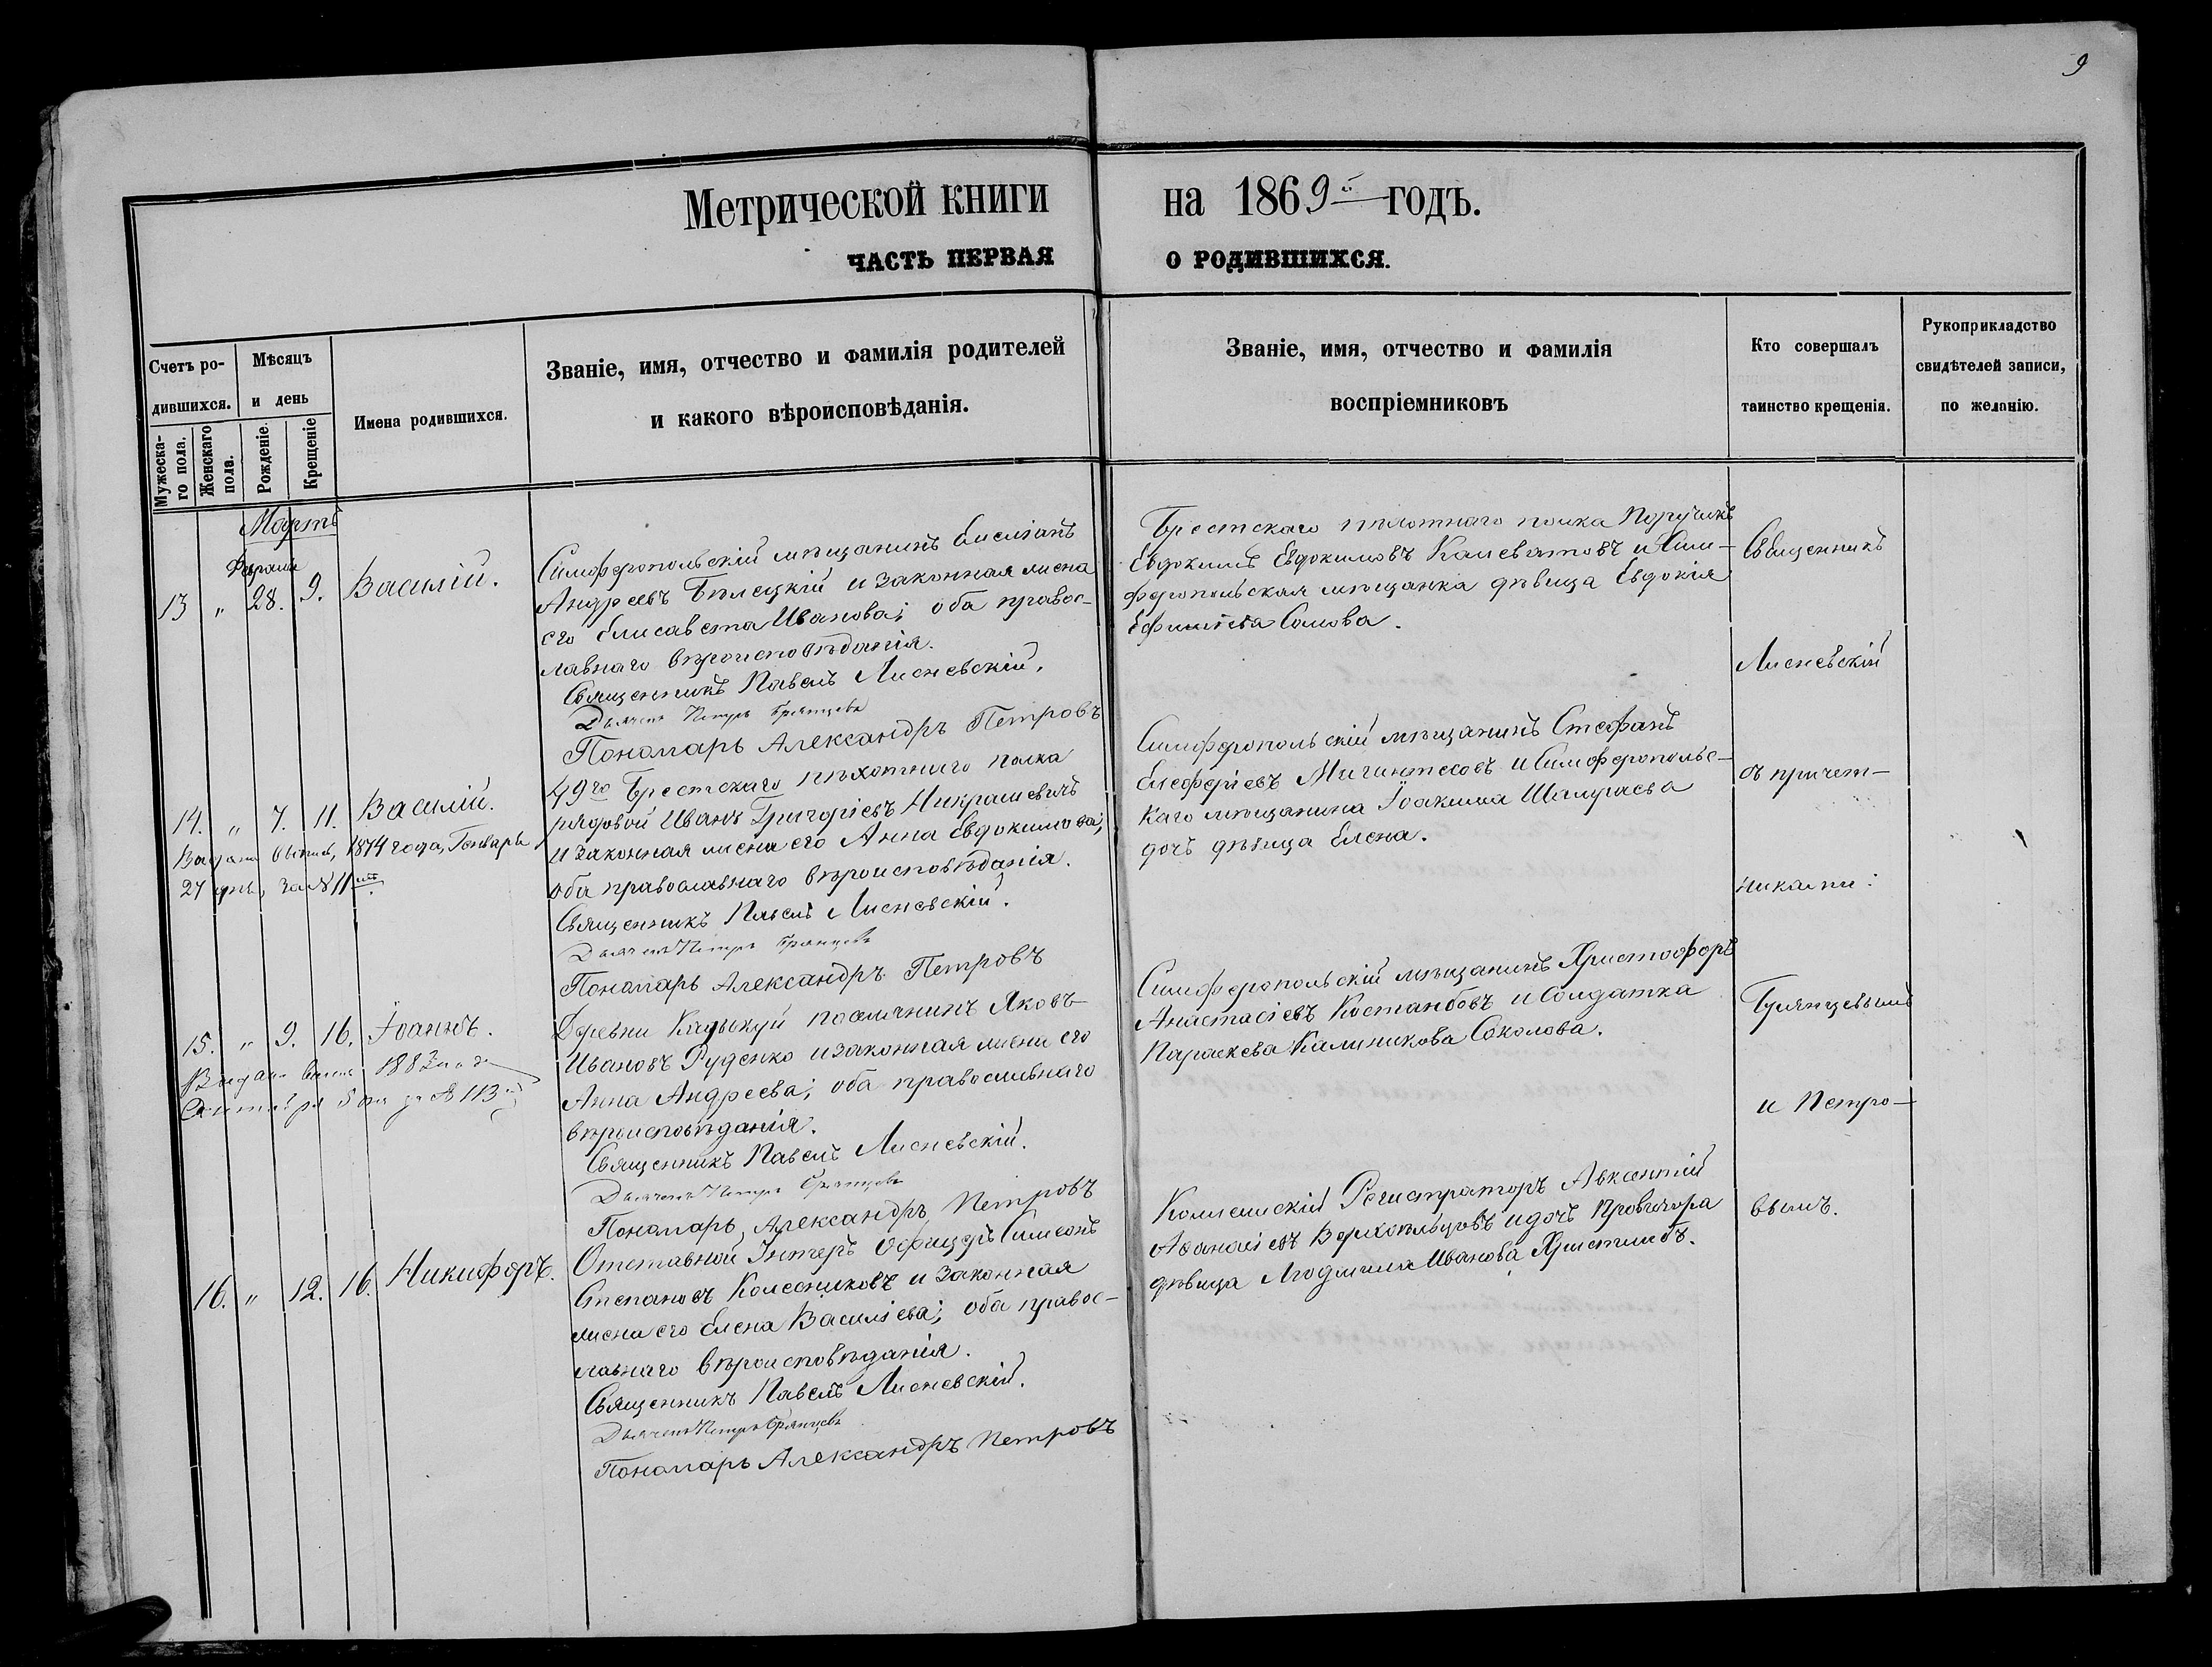 9
Метрической книги на 1869й годъ.
ЧАСТЬ ПЕРВАЯ О РОДИВШИХСЯ.
Счетъ ро-
дившихся.
Мѣсяцъ
и день
Мужеска-
го пола.
Женскаго
пола.
Рожденіе.
Крещеніе
Имена родившихся.
Званіе, имя, отчество и фамилія родителей
и какого вѣроисповѣданія.
Званіе, имя, отчество и фамилія
воспріемниковъ
Кто совершалъ
таинство крещенія.
Рукоприкладство
свидѣтелей записи,
по желанію.
Мартъ
Февраля
13 " 28. 9. Василій.
Симферопольскій мѣщанинъ
Андреевъ Бѣлецкій и законная жена
его Елисавета Иванова; оба правос-
лавнаго вѣроисповѣданія.
Священникъ Павелъ Лисневскій.
Дьячекъ Петръ Брянцевъ
Пономарь Александръ Петровъ
Брестскаго пѣхотнаго полка Поручикъ
Евдокимъ Евдокимовъ и Сим-
феропольская мѣщанка дѣвица Евдокія
Сомова.
14. " 7. 11. Василій.
Выдана 1874 года, Генваря
27 дня, за № 11мъ.
49го Брестскаго пѣхотнаго полка
рядовой Иванъ Григоріевъ Никрашевичъ
и законная жена его Анна Евдокимова;
оба православнаго вѣроисповѣданія.
Священникъ Павелъ Лисневскій.
Дьячекъ Петръ Брянцевъ
Пономарь Александръ Петровъ
Симферопольскій мѣщанинъ Стефанъ
Елефферіевъ и Симферопольс-
каго мѣщанина Іоакима
дочь дѣвица Елена.
15. " 9. 16. Іоаннъ.
Выдана 1883 года
Сентября за № 113
Деревни поселянинъ Яковъ
Ивановъ Руденко и законная жена его
Анна Андреева; оба православнаго
вѣроисповѣданія.
Священникъ Павелъ Лисневскій.
Дьячекъ Петръ Брянцевъ
Пономарь Александръ Петровъ
Симферопольскій мѣщанинъ Христофоръ
Анастасіевъ и Солдатка
Параскева Калиникова Соколова.
16. " 12. 16. Никифоръ.
Отставной Унтеръ Офицеръ Симеонъ
Степановъ Колесниковъ и законная
жена его Елена Василіева; оба правос-
лавнаго вѣроисповѣданія.
Священникъ Павелъ Лисневскій.
Дьячекъ Петръ Брянцевъ
Пономарь Александръ Петровъ
Регистраторъ Авксентій
Аѳанасіевъ и дочь Провизора
дѣвица Людмила Иванова
Священникъ
Лисневскій
съ причет-
никами:
Брянцевымъ
и Петро-
вымъ.